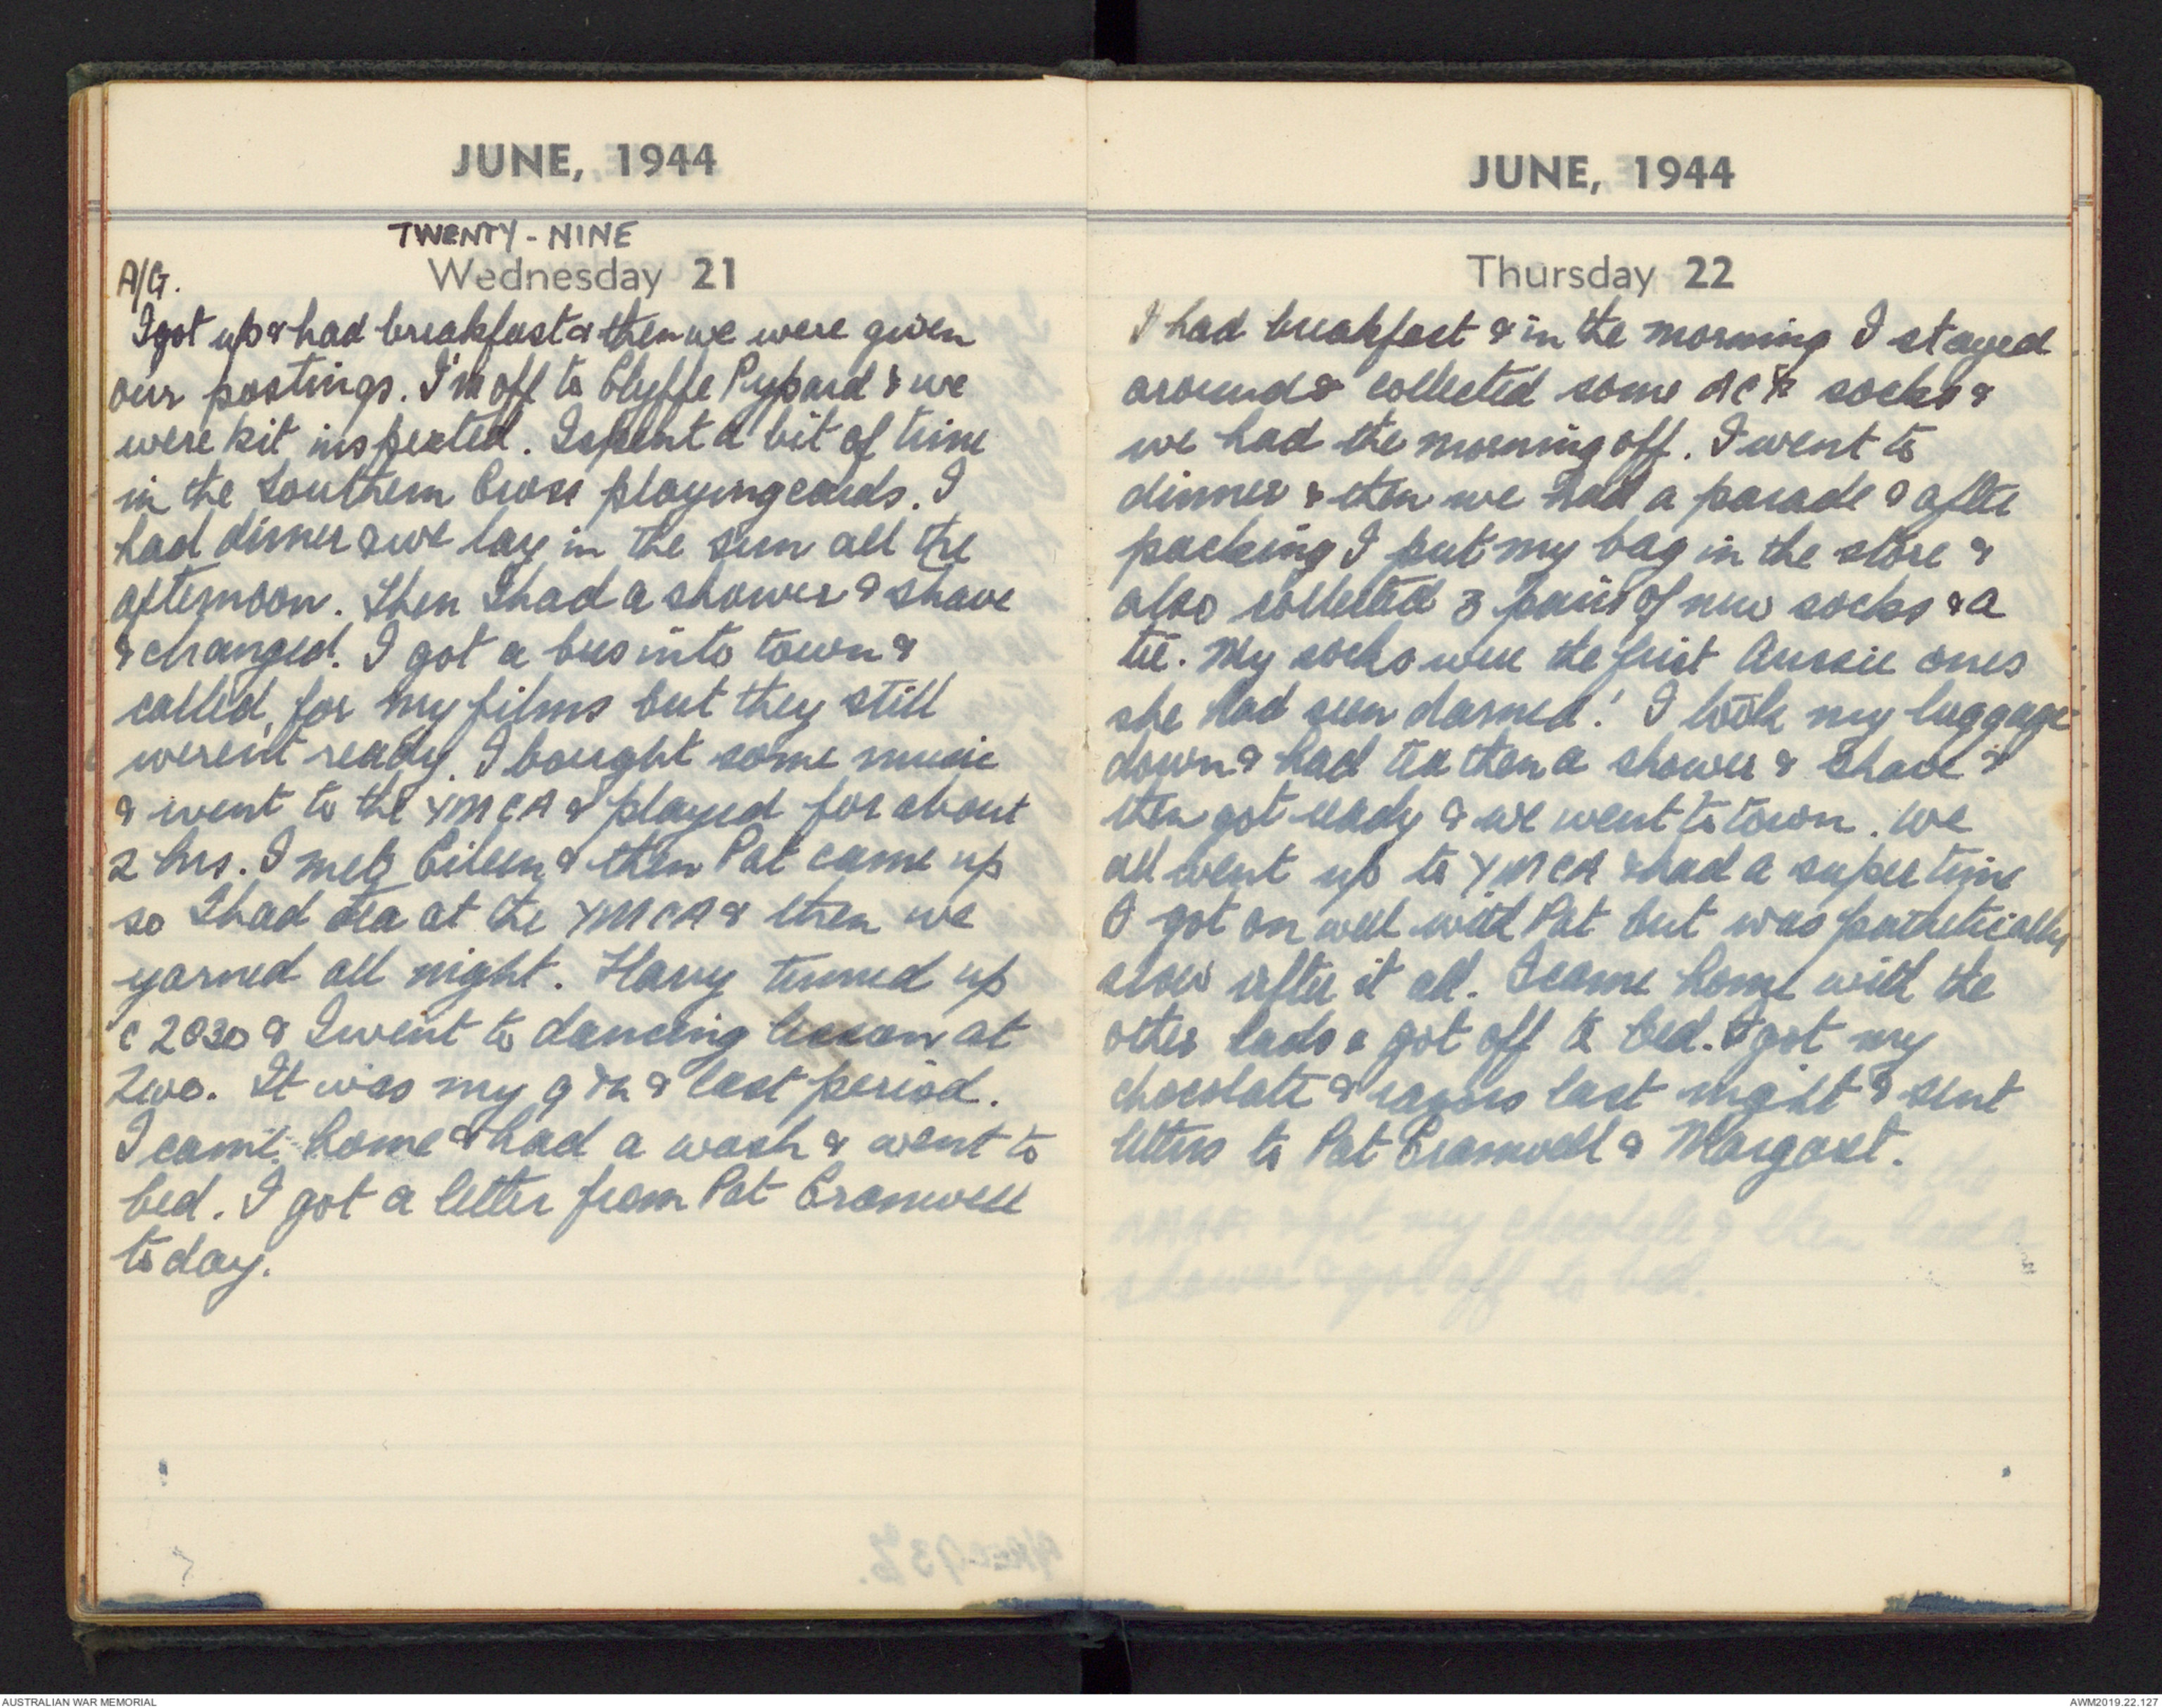 JUNE, 1944
TWENTY-NINE
Wednesday 21
A/G.
I got up & had breakfast & then we were given
our postings. I'm off to Clyffe Pypard & we
were kit inspected. I spent a bit of time
in the Southern Cross playing cards. I
had dinner & we lay in the sun all the
afternoon. Then I had a shower & shave
& changed. I got a bus into town &
called for my films but they still
weren't ready. I bought some music
& went to the YMCA & played for about
2 hrs. I met Eileen & then Pat came up
so I had tea at the YMCA & then we
yarned all night. Harry turned up
c 2030 & I went to dancing lesson at
Zwo. It was my 9th & last period.
I came home & had a wash & went to
bed. I got a letter from Pat Cramwell
today.
JUNE, 1944
Thursday 22
I had breakfast & in the morning I stayed
around & collected some socks &
we had the morning off. I went to
dinner & then we had a parade & after
packing I put my bag in the store &
also collected 3 pairs of new socks & a
tie. My socks were the first Aussie ones
she had seen darned! I took my luggage
down & had tea then a shower & shave &
then got ready & we went to town. We
all went up to YMCA & had a super time
I got on well with Pat but was pathetically
slow after it all. I came home with the
other lads & got off to bed. I got my
chocolate & razors last night & sent
letters to Pat Cramwell & Margaret.
AUSTRALIAN WAR MEMORIAL
AWM2019.22.127